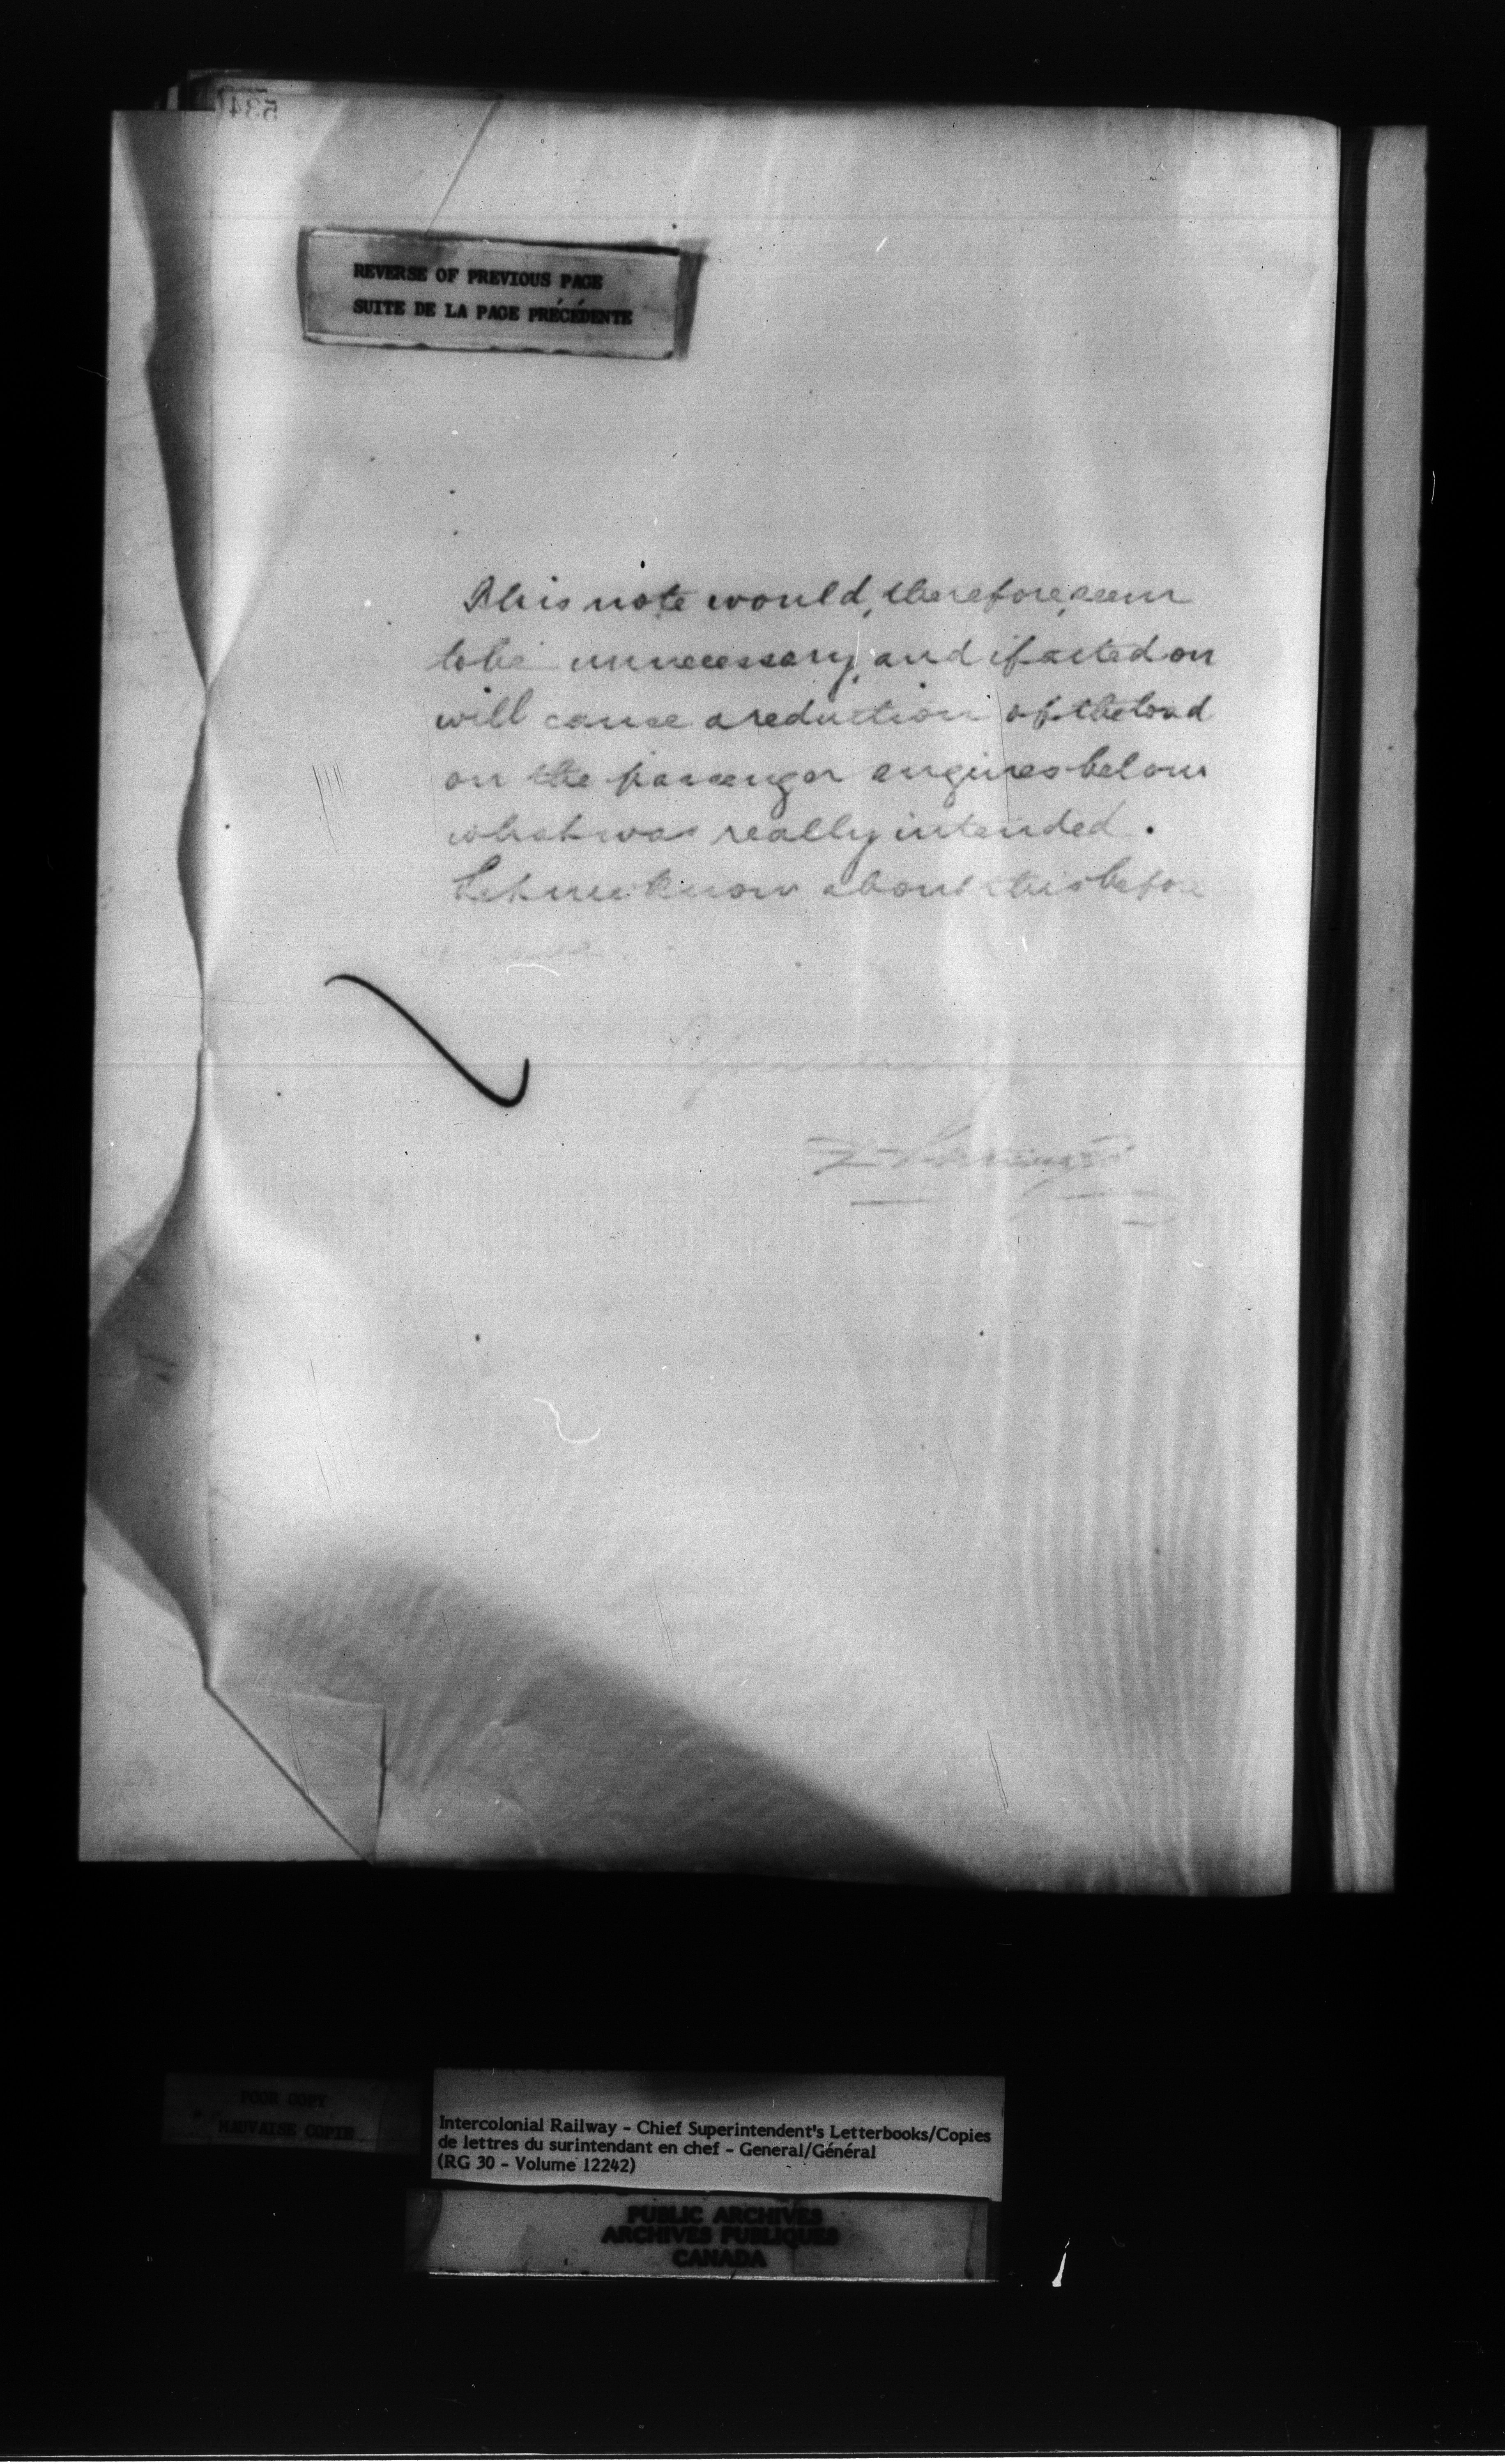 534
REVERSE OF PREVIOUS PAGE
SUITE DE LA PAGE PRÉCÉDENTE
This note would, therefore, seem
to be unnecessary, and if acted on
will cause a reduction of the load
on the passenger engines below
what was really intended.
Let me know about this before
POOR COPY
MAUVAISE COPIE
Intercolonial Railway - Chief Superintendent's Letterbooks/Copies
de lettres du surintendant en chef - General/Général
(RG 30 - Volume 12242)
PUBLIC ARCHIVES
ARCHIVES PUBLIQUES
CANADA